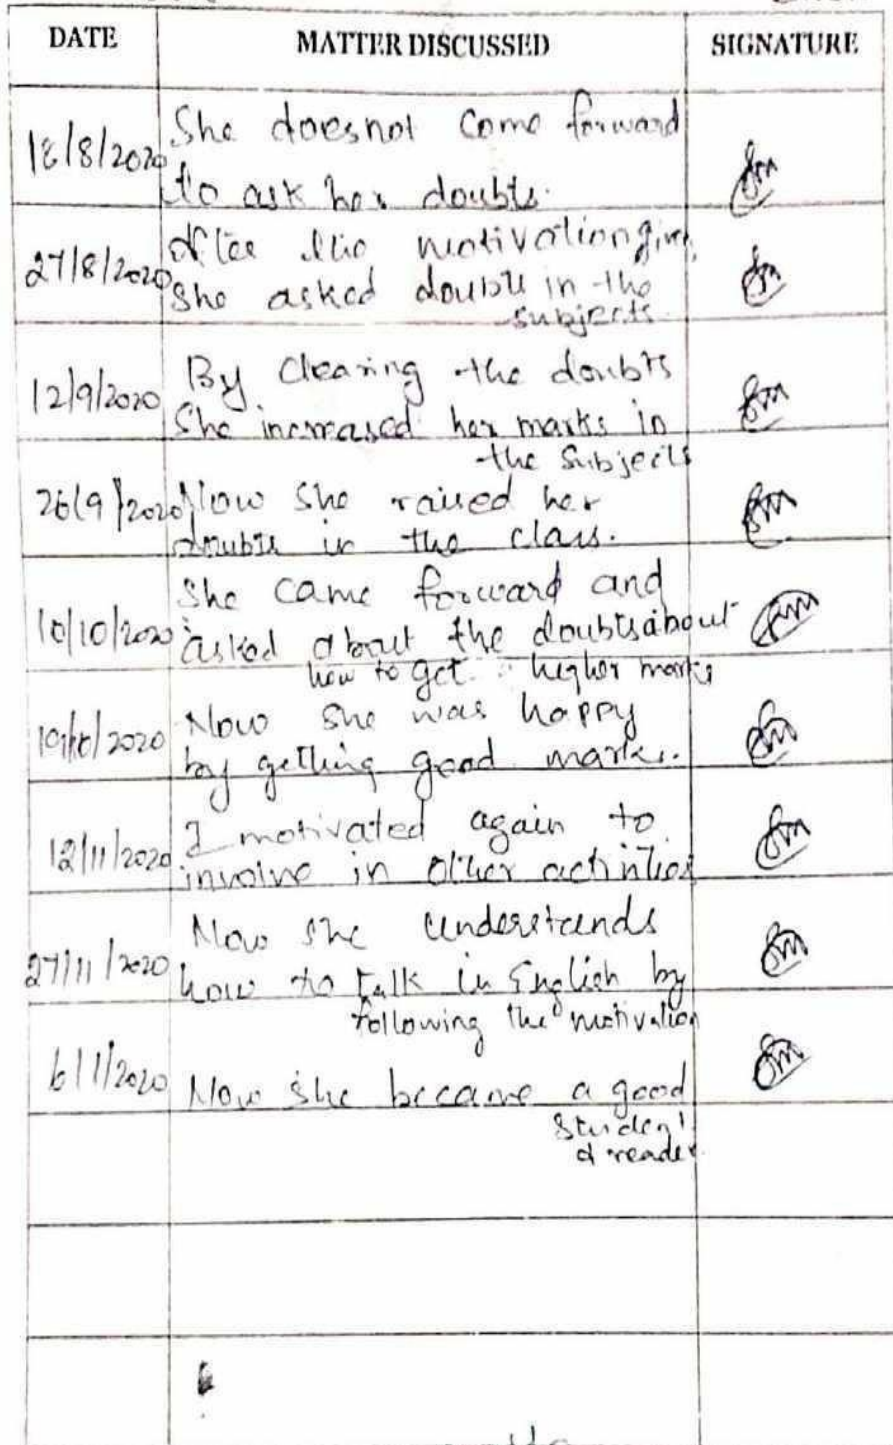 DATE MATTER DISCUSSED SIGNATURE
18/8/2020 She doesnot come forward
to ask her doubts.
27/8/2020 After the motivation given
She asked doubts in the
subjects.
12/9/2020 By clearing the doubts
She increased her marks in
the subjects
26/9/2020 Now she raised her
doubts in the class.
10/10/2020 She came forward and
asked about the doubts about
how to get higher marks
Now she was happy
by getting good marks.
12/11/2020 I motivated again to
involve in other activities
27/11/2020 Now she understands
how to talk in English by
following the motivation
6/1/2020 Now she became a good
student
& reader.